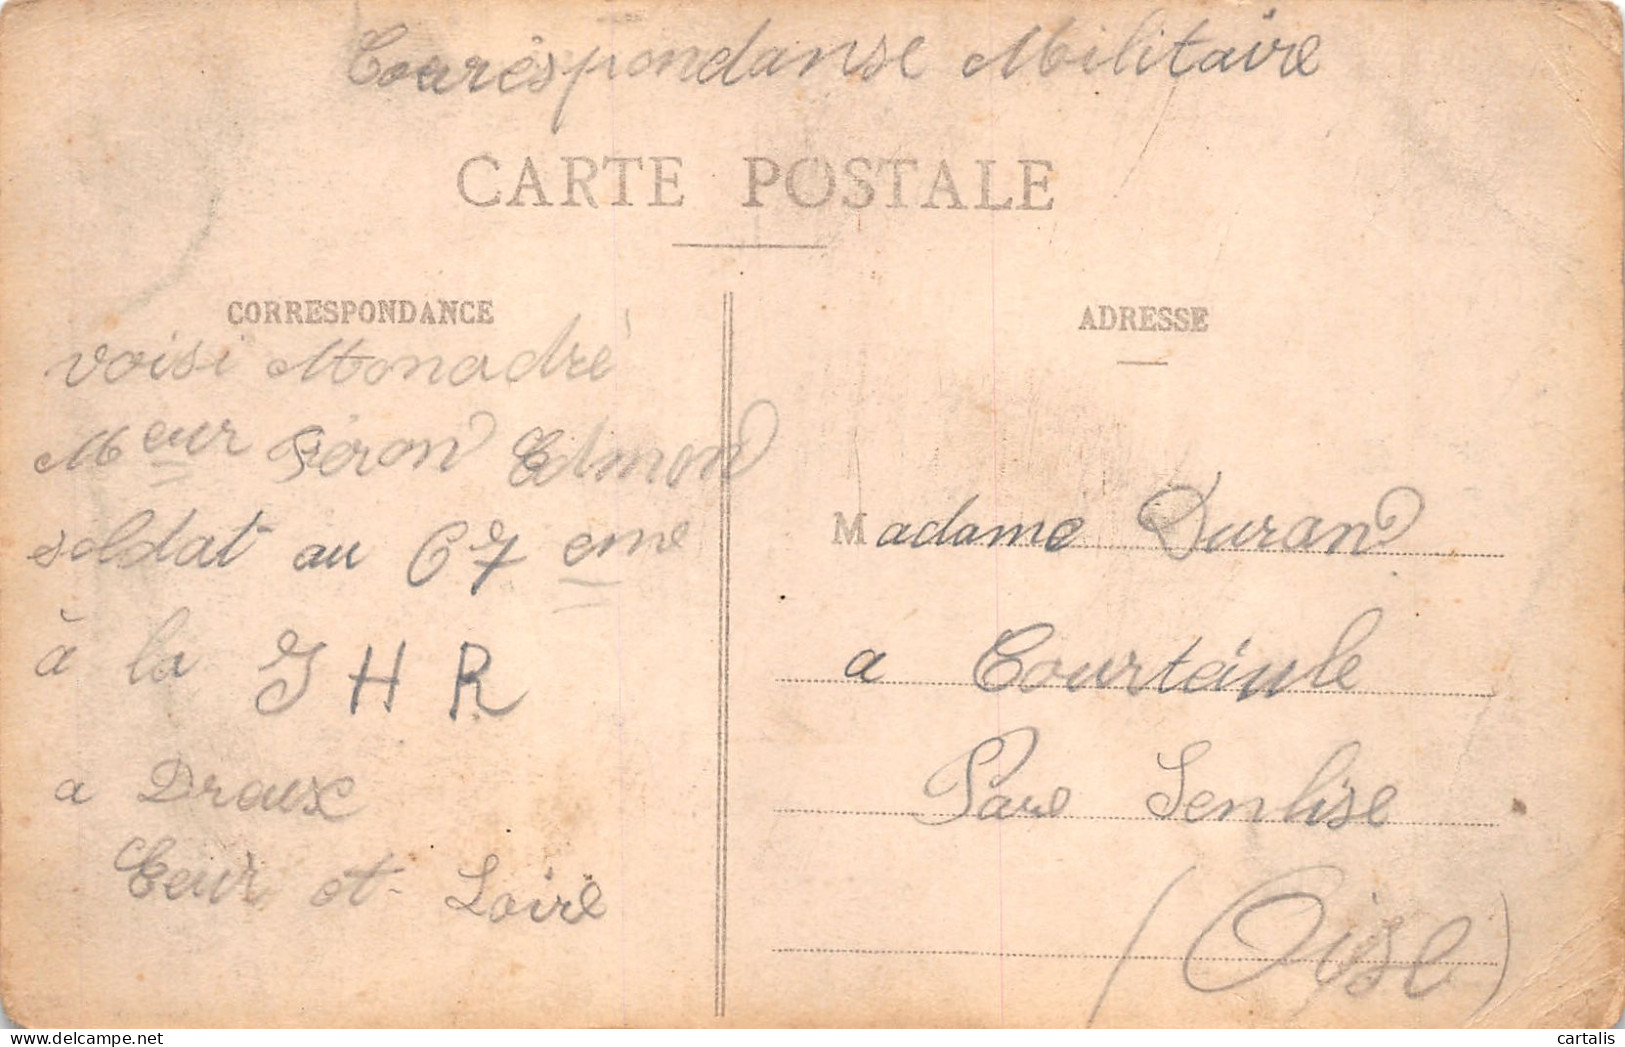 Courèspondanse Militaire
CARTE POSTALE
CORRESPONDANCE
voisi Monadré
Meur Féron Edmond
soldat au 67 eme
à la S H R
a Dreux
Eeur et Loire
ADRESSE
Madame Durand
a Courteuile
Pare Senlise
(Oise)
cartalis